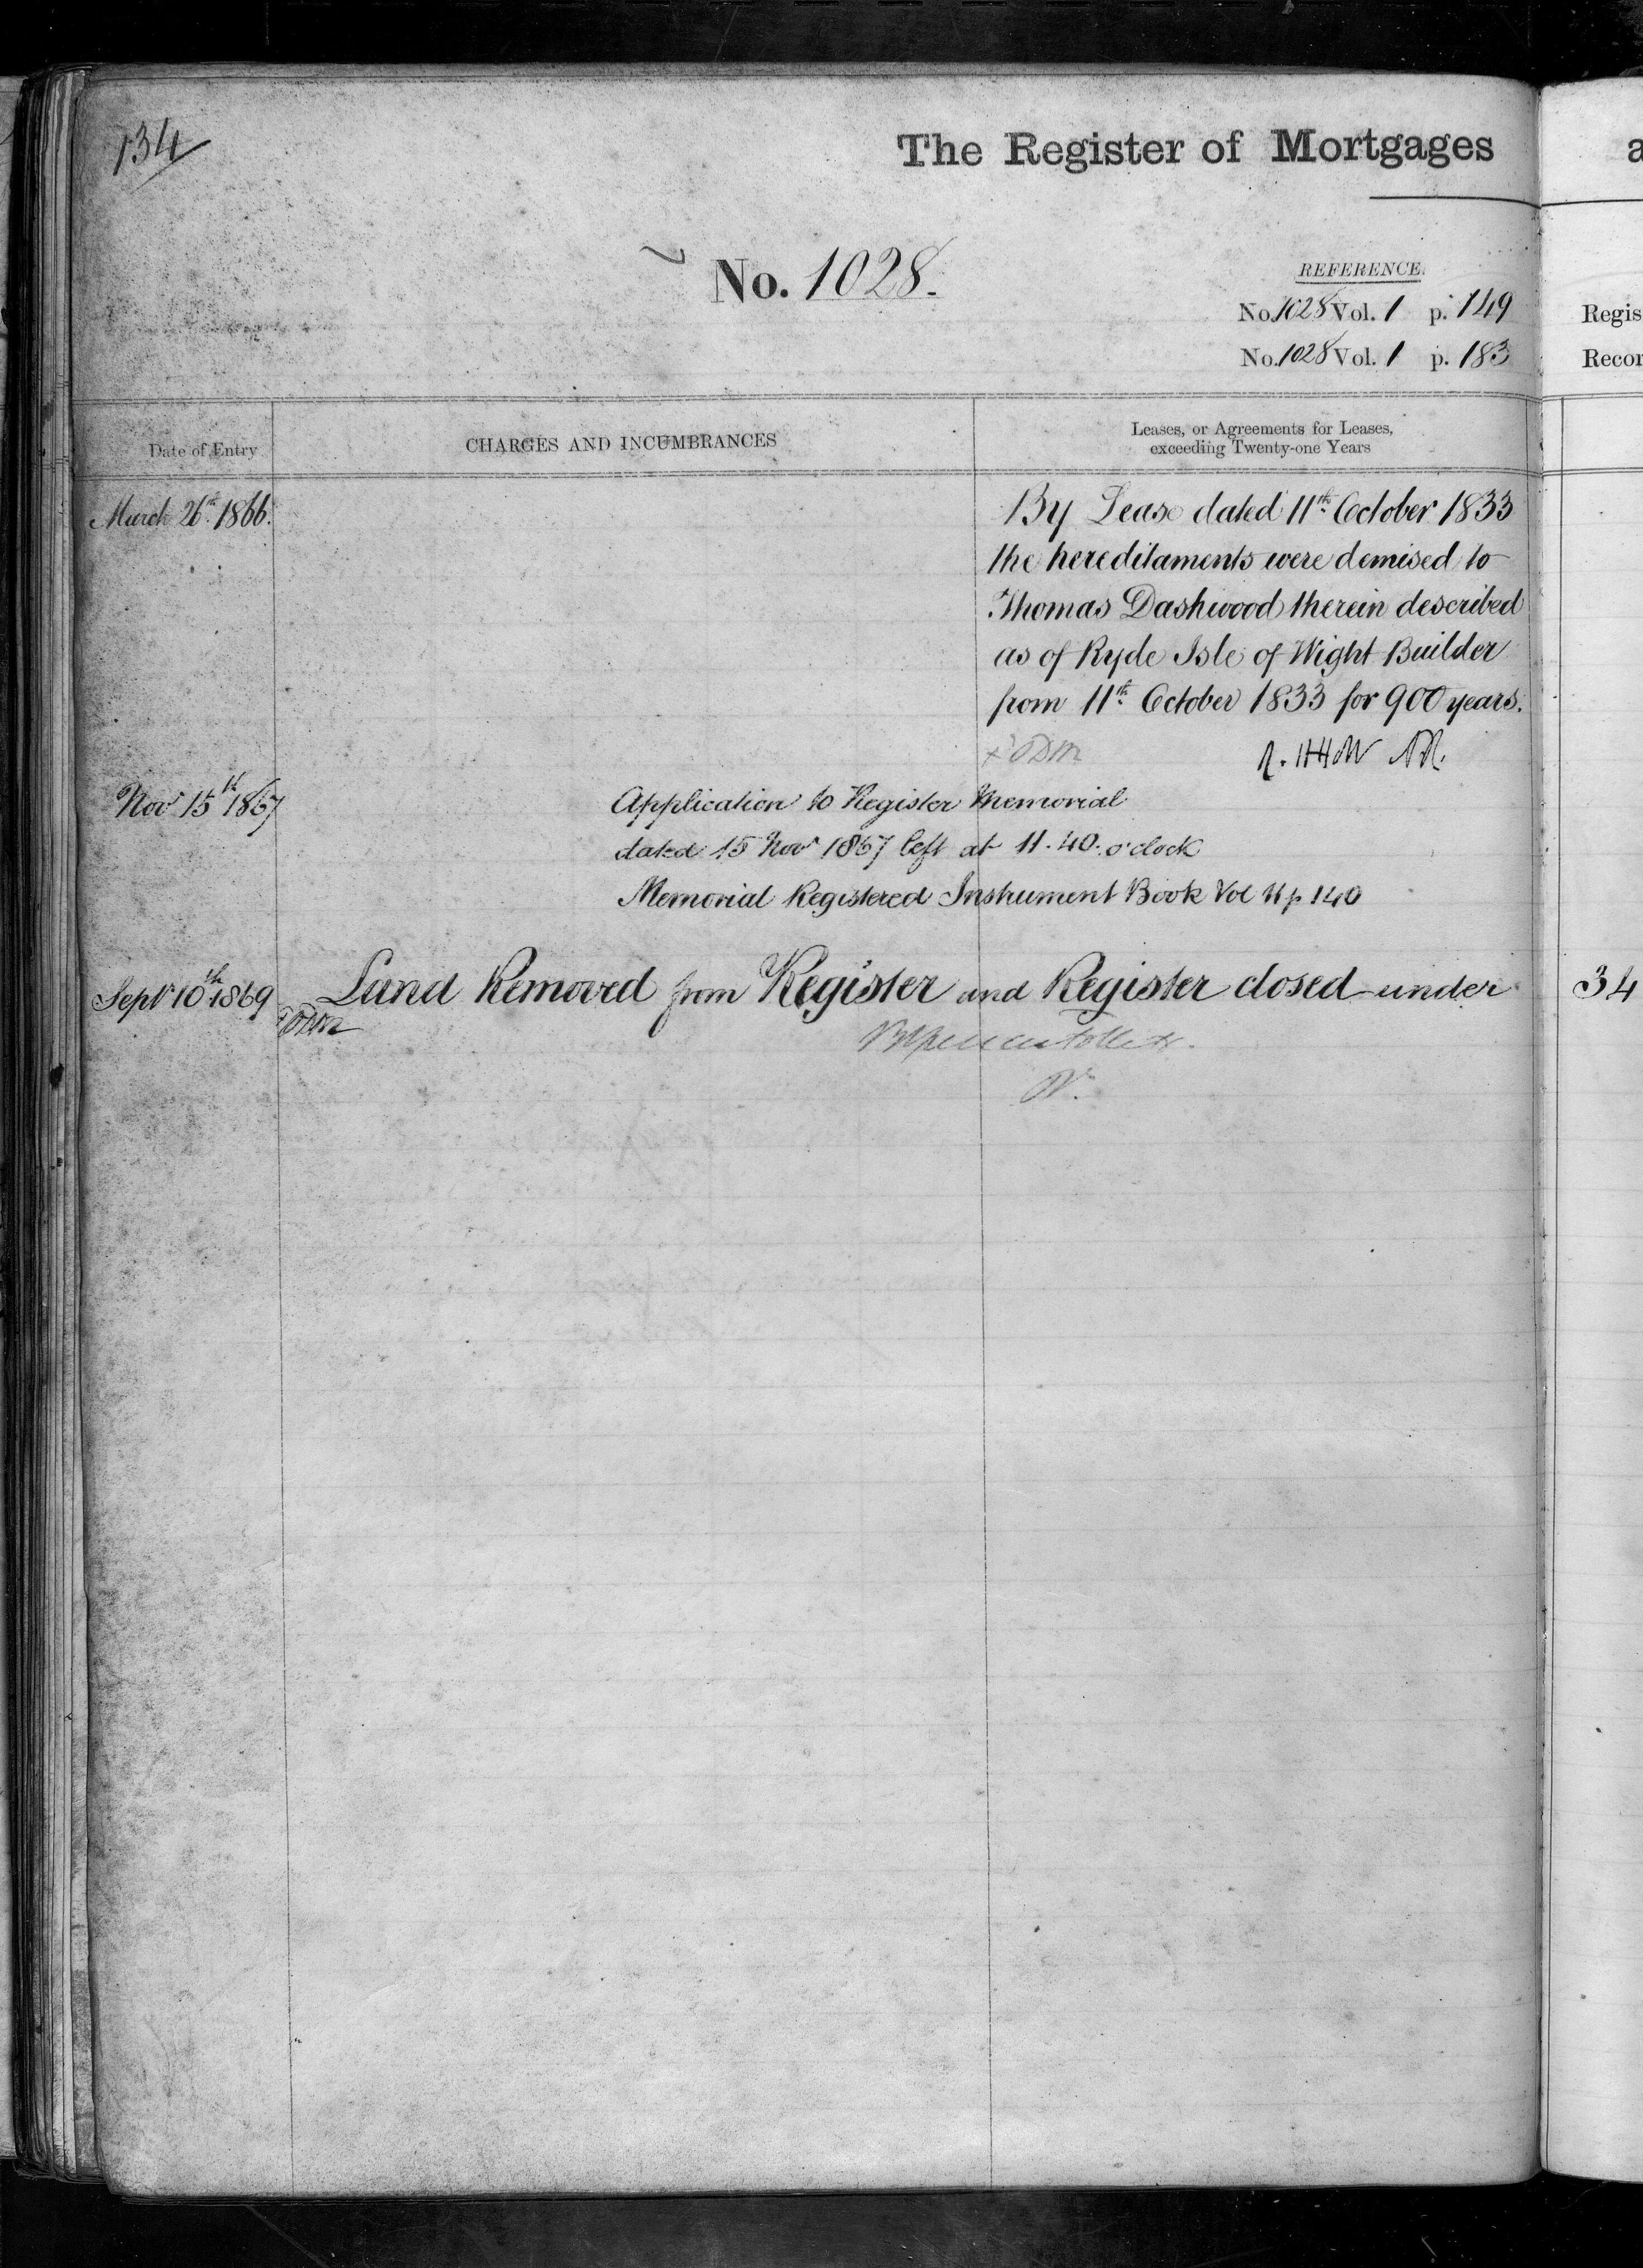 134
The Register of Mortgages
No. 1028.
REFERENCE.
No. 1028 Vol. 1 p. 149
No. 1028 Vol. 1 p. 183
Regis
Recor
Date of Entry
CHARGES AND INCUMBRANCES
Leases, or Agreements for Leases,
exceeding Twenty-one Years
March 26th 1866.
By Lease dated 11th October 1833
the hereditaments were demised to
Thomas Dashwood therein described
as of Ryde Isle of Wight Builder
from 11th October 1833 for 900 years.
Nov 15th 1867
Application to Register Memorial
dated 15 Nov 1867 left at 11.40. o'clock
Memorial Registered Instrument Book Vol p 140
Sept 10th 1869
Land Removed from Register and Register closed under
34